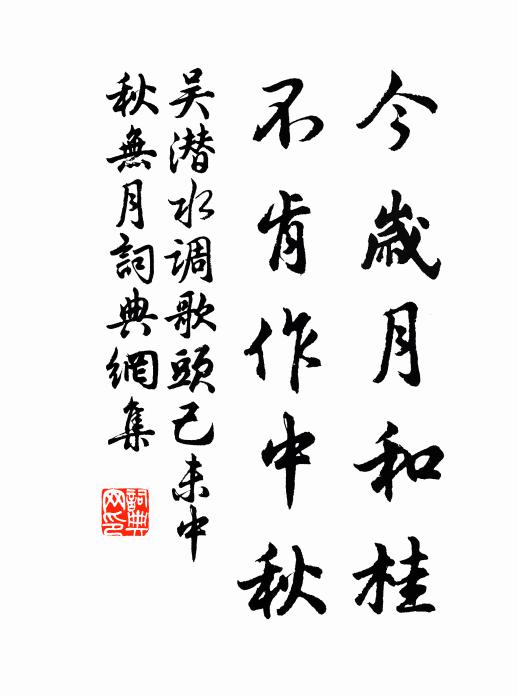 今歲月和桂
不肯作中秋
吴潜水调歌頭己未中
秋無月詞典網集
詞典
网印